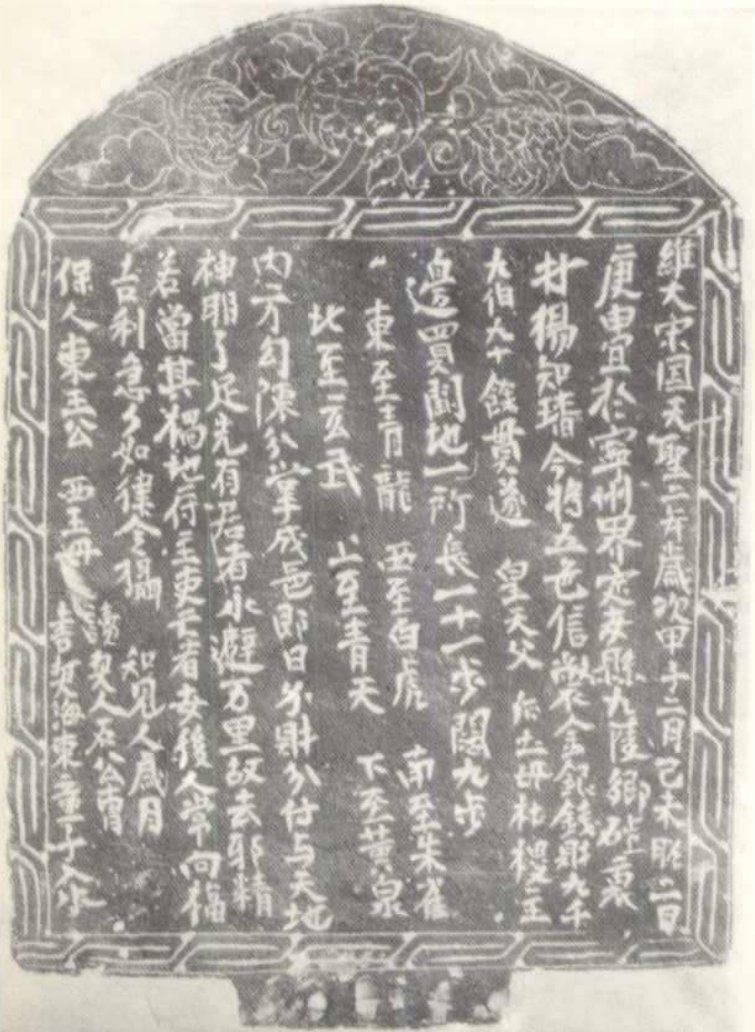 維大宋国天聖二年歲次甲子二月己未朔二日
庚申宜於寧州界定安縣九陵鄉
村楊知璠今將五色信幣金銀錢財九千
九伯九十餘貫遂 皇天父 后土母社稷主
邊買閫地一所長一十一步闊九步
東至青龍 西至白虎 南至朱雀
北至玄武 上至青天 下至黃泉
内方勾陳分掌咸邑即日分財分付与天地
神明了足先有居者永避万里故去邪精
若當其禍地府主吏干者安後人常向福
吉利急々如律令攝 知見人歲月
保人東王公 西王母 讀契人石公曹
書契海東童子入水